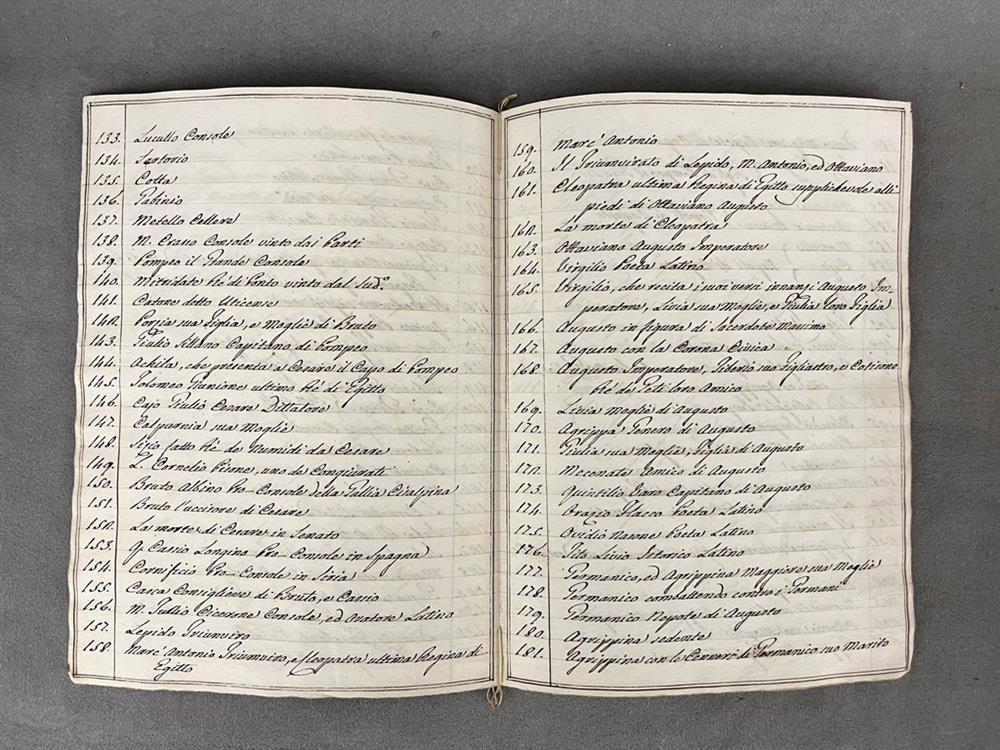 133. Lucullo Console
134. Sertorio
135. Cotta
136. Gabinio
137. Metello Cellere
138. M. Crasso Console vinto dai Parti
139. Pompeo il Grande Console
140. Mitridate Rè di Ponto vinto dal Sud.º
141. Catone detto Uticense
142. Porzia sua Figlia, e Moglie di Bruto
143. Giulio Sillano Capitano di Pompeo
144. Achila, che presenta a Cesare il Capo di Pompeo
145. Tolomeo Iunione ultimo Rè di Egitto
146. Cajo Giulio Cesare Dittatore
147. Calpurnia sua Moglie
148. Sizio fatto Rè de Numidi da Cesare
149. L. Cornelio Pisone, uno de Congiurati
150. Bruto Albino Pro-Console della Gallia Cisalpina
151. Bruto l'uccisore di Cesare
152. La morte di Cesare in Senato
153. Q. Cassio Longino Pro-Console in Spagna
154. Cornificio Pro-Console in Siria
155. Casca Consigliere di Bruto, e Cassio
156. M. Tullio Cicerone Console, ed Oratore Latino
157. Lepido Triumviro
158. Marc' Antonio Triumviro, e Cleopatra ultima Regina di
Egitto
159. Marc' Antonio
160. Il Triumvirato di Lepido, M. Antonio, ed Ottaviano
161. Cleopatra ultima Regina di Egitto supplichevole alli
piedi di Ottaviano Augusto
162. La morte di Cleopatra
163. Ottaviano Augusto Imperatore
164. Virgilio Poeta Latino
165. Virgilio, che recita i suoi versi innanzi Augusto Im-
peratore, Livia sua Moglie, e Giulia loro Figlia
166. Augusto in figura di Sacerdote Massimo
167. Augusto con la Corona Civica
168. Augusto Imperatore, Tiberio suo Figliastro, e Cotisone
Rè de Geti loro Amico
169. Livia Moglie di Augusto
170. Agrippa Genero di Augusto
171. Giulia sua Moglie, Figlia di Augusto
172. Mecenate Amico di Augusto
173. Quintilio Varo Capitano di Augusto
174. Orazio Flacco Poeta Latino
175. Ovidio Nasone Poeta Latino
176. Tito Livio Istorico Latino
177. Germanico, ed Agrippina Maggiore sua Moglie
178. Germanico combattendo contro i Germani
179. Germanico Nepote di Augusto
180. Agrippina sedente
181. Agrippina con le Ceneri di Germanico suo Marito